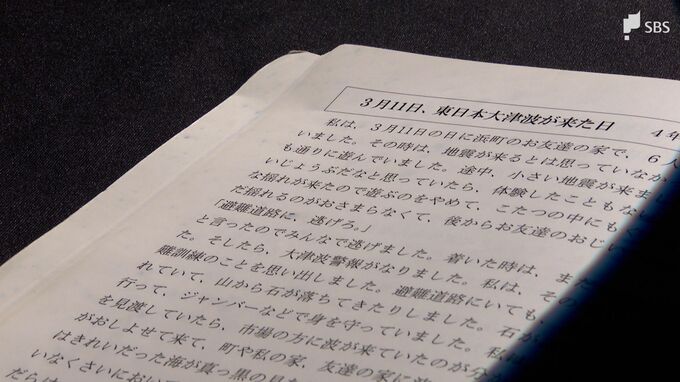 SBS
3月11日、東日本大津波が来た日
4年
私は、3月11日の日に浜町のお友達の家で、6人
いました。その時は、地震が来るとは思っていなか
も通りに遊んでいました。途中、小さい地震が来ま
いじょうぶだなと思っていたら、体験したこともない
な揺れが来たので遊ぶのをやめて、こたつの中にもぐ
だ揺れるのがおさまらなくて、後からお友達のおじい
「避難道路に、逃げろ。」
と言ったのでみんなで逃げました。着いた時は、また
た。そしたら、大津波警報がなりました。私は、その
難訓練のことを思い出しました。避難道路にいても、
れていて、山から石が落ちてきたりしました。石が
行って、ジャンパーなどで身を守っていました。私
を見渡していたら、市場の方に波が来ていたのが分
がおしよせて来て、町や私の家、友達の家に波
はきれいだった海が真っ黒の見た
いなくさいにおいで
だらけ